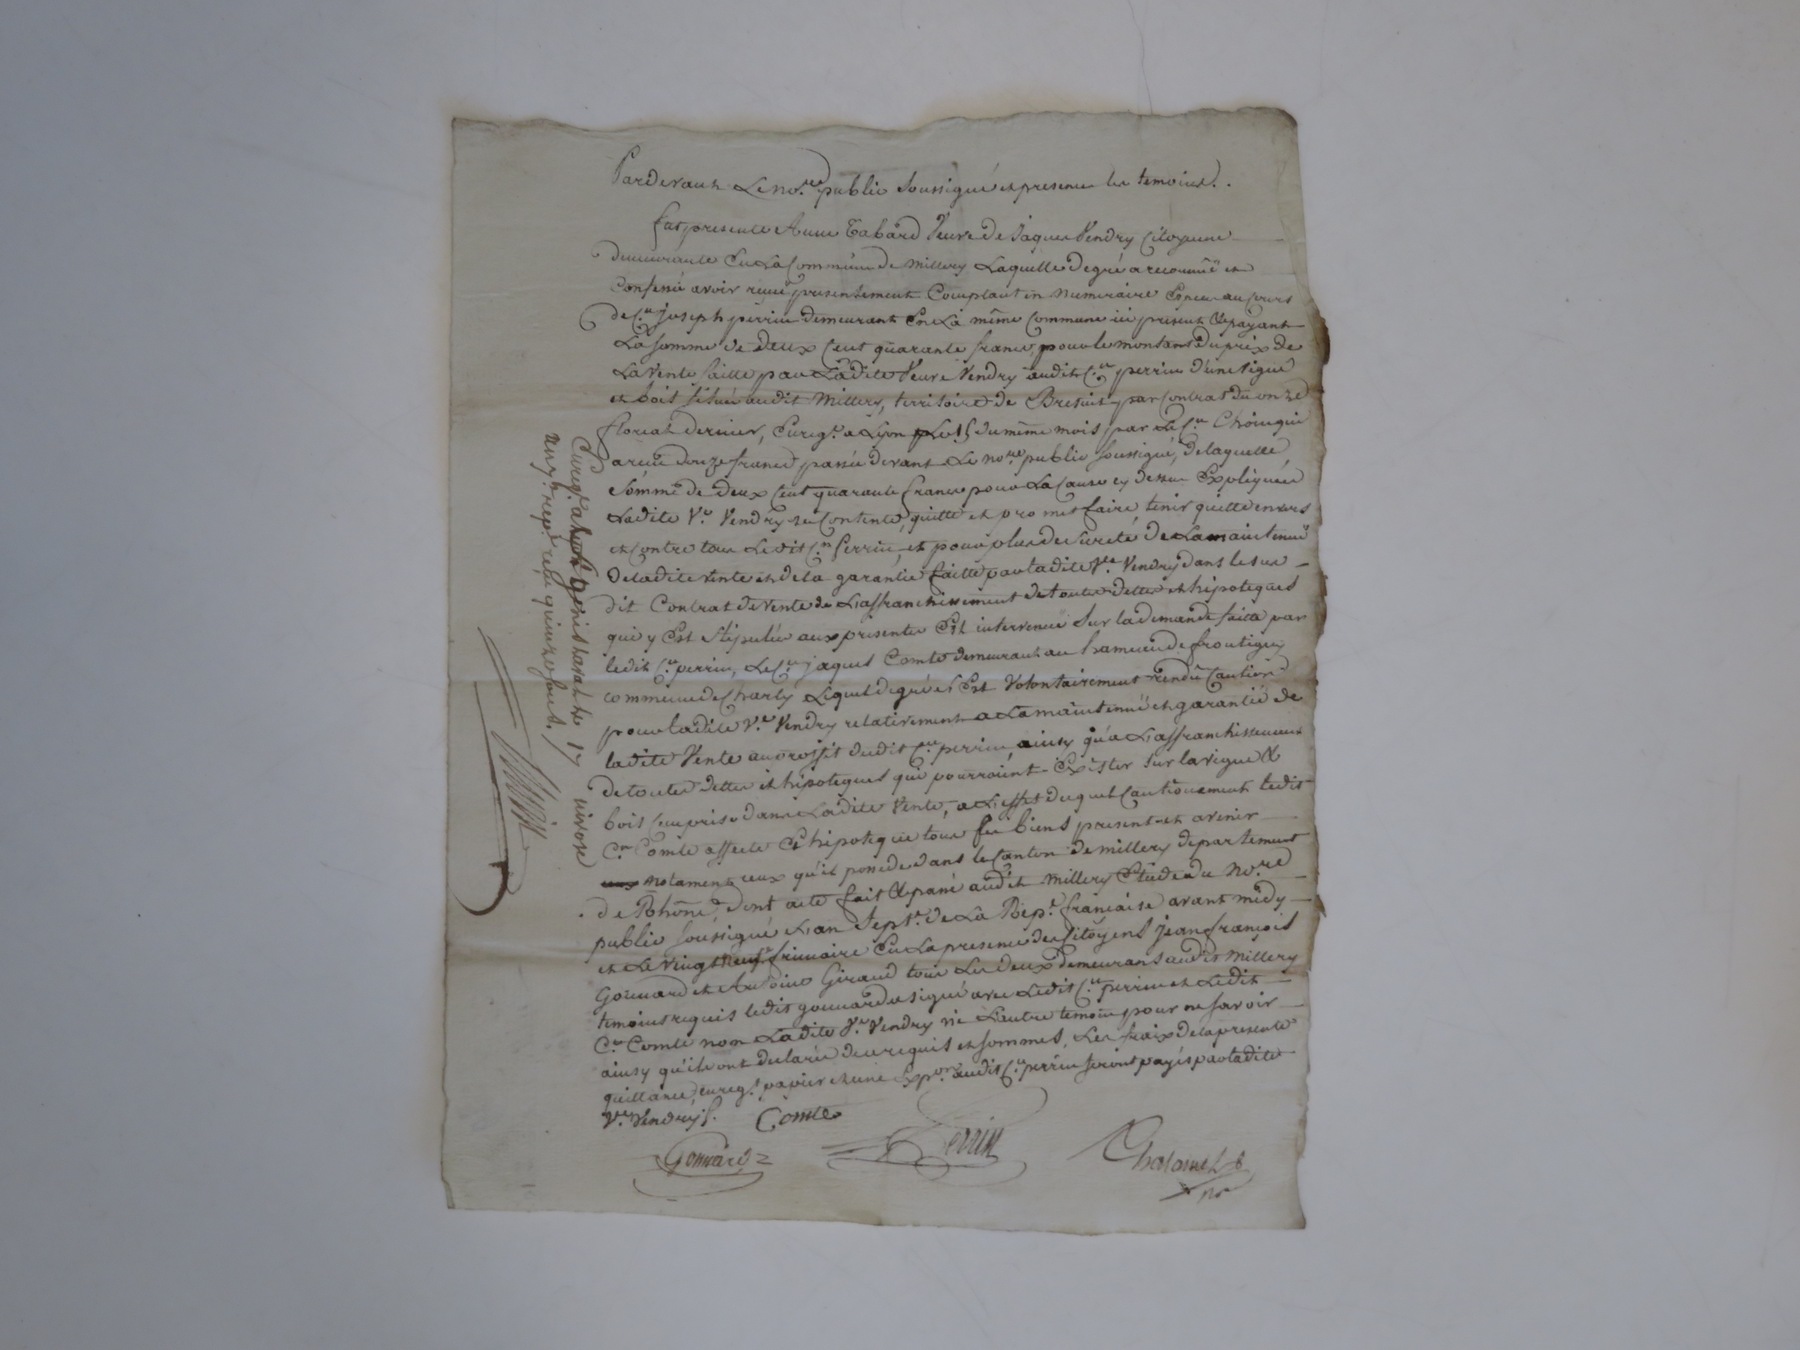 Pardevant Le no.re public Soussigné et presence les temoins.
fut presente Anne Tabard Veuve de Jaques Vendry Citoyenne
demeurante En La Commune de Millery Laquelle de gré a reconnüe et
Confessé avoir recue presentement Comptant en Numeraire Espece au Cours
de C.en joseph perrin demeurant En La même Commune ici present & payant
La somme de deux Cent quarante francs, pour le montant du prix de
La Vente faitte par Ladite Veuve Vendry audit C.en perrin d'une vigne
et bois située audit Millery, territoire de Bresuit par Contrat du onze
floreal dernier, Enreg.é a Lyon Le 15 du même mois par Le C.en Choin qui
a recu douze francs passée devant Le no.re public soussigné, de laquelle
Somme de deux Cent quarante francs pour La Cause cy dessus Expliquée
Ladite V.e Vendry se Contente, quitte et promet faire tenir quitte envers
et Contre tous Ledit C.en Perrin, et pour plus de sureté de La maintenue
de ladite vente et de la garantie faitte par ladite V.ve Vendry dans le sus-
dit Contrat de vente de L'affranchissement de toutes dettes et hipoteques
qui y Est stipulée aux presentes Est intervenue Sur la demande faite par
ledit C.en perrin, Le C.en jaques Comte demeurant au hameau de frontigny
commune de Charly Lequel de gré s'Est Volontairement rendu Caution
pour ladite V.e Vendry relativement a La maintenue et garantie de
ladite Vente au profit dudit C.en perrin, ainsy qu'a L'affranchissement
de toutes dettes et hipoteques qui pourroient Exister sur la vigne &
bois Comprise dans Ladite Vente, a L'effet duquel Cautionement ledit
C.en Comte affecte & hipoteque tous ses biens present et avenir
Notament ceux qu'il possede dans le Canton de Millery departement
de Rhône, dont acte fait & passé audit Millery Etude du No.re
public soussigné L'an Sept.e de La Rép.e francaise avant midy
et Le vingt neuf frimaire En La presence des Citoyens jean françois
Gonnard et Antoine Giraud tous Les deux demeurans audit Millery
temoins requis ledit gonnard a signé avec Ledit C.en perrin et Ledit
C.en Comte non Ladite V.e Vendry ni L'autre temoin pour ne savoir
ainsy qu'ils ont declarée de ce requis et sommés, Les fraix de la presente
quittance, enreg.t papier et une Exp.on audit C.en perrin seront payés par ladite
V.ve Vendry.
Comte
Gonnard
Perrin
Chalamel
No.re
Enreg.é a Genis Laval le 17 nivose
an 7.e rep.n recu quinze sous.